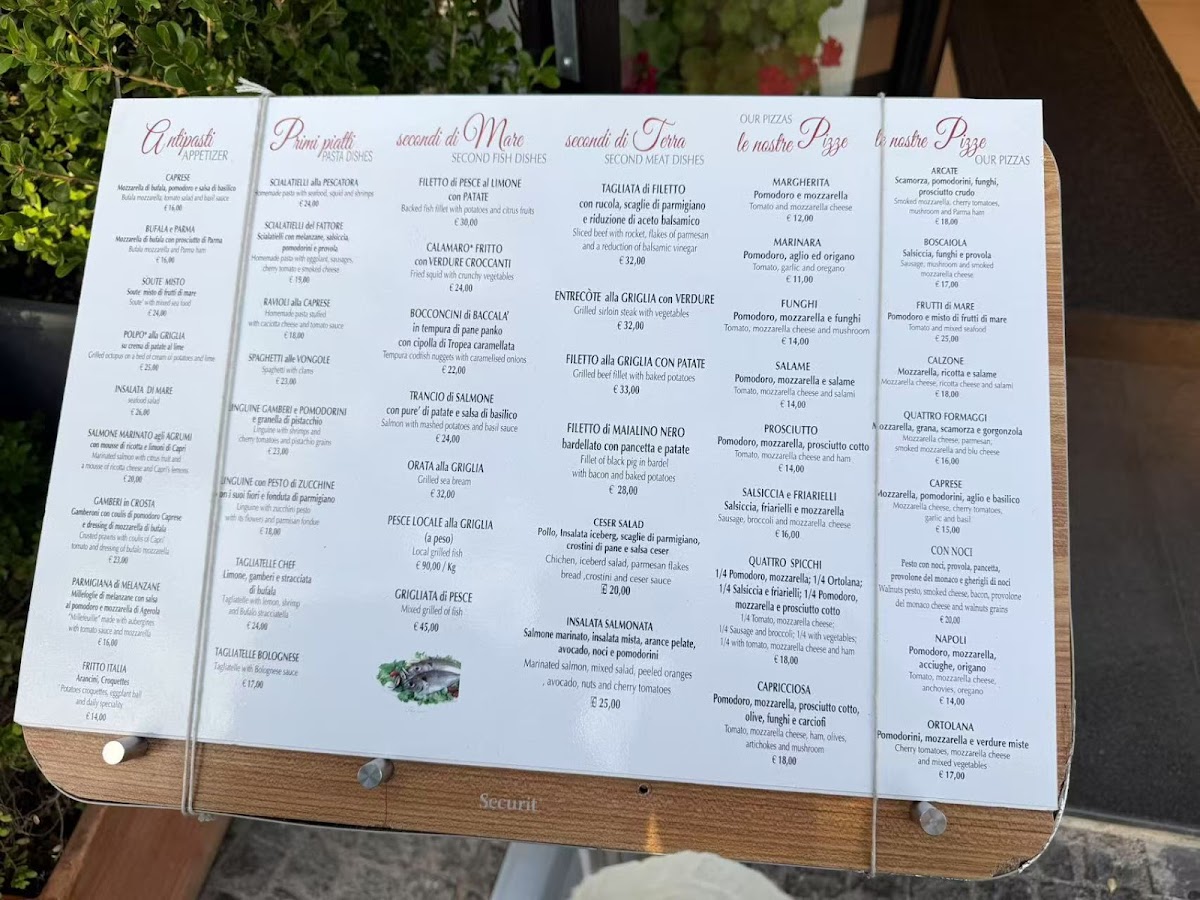 Antipasti
APPETIZER
CAPRESE
Mozzarella di bufala, pomodoro e salsa di basilico
Bufala mozzarella, tomato salad and basil sauce
€ 16,00
BUFALA e PARMA
Mozzarella di bufala con prosciutto di Parma
Bufala mozzarella and Parma ham
€ 16,00
SOUTE MISTO
Soute misto di frutti di mare
Soute' with mixed sea food
€ 24,00
POLPO* alla GRIGLIA
su crema di patate al lime
Grilled octopus on a bed of cream of potatoes and lime
€ 25,00
INSALATA DI MARE
seafood salad
€ 26,00
SALMONE MARINATO agli AGRUMI
con mousse di ricotta e limoni di Capri
Marinated salmon with citrus fruit and
a mousse of ricotta cheese and Capri's lemons
€ 20,00
GAMBERI in CROSTA
Gamberoni con coulis di pomodoro Caprese
e dressing di mozzarella di bufala
Crusted prawns with coulis of Capri
tomato and dressing of bufalo mozzarella
€ 23,00
PARMIGIANA di MELANZANE
Millefoglie di melanzane con salsa
al pomodoro e mozzarella di Agerola
"Millefeuille" made with aubergines
with tomato sauce and mozzarella
€ 16,00
FRITTO ITALIA
Arancini, Croquettes
Potatoes croquettes, eggplant ball
and daily speciality
€ 14,00
Primi piatti
PASTA DISHES
SCIALATIELLI alla PESCATORA
Homemade pasta with seafood, squid and shrimps
€ 24,00
SCIALATIELLI del FATTORE
Scialatielli con melanzane, salsiccia,
pomodorini e provola
Homemade pasta with eggplant, sausages,
cherry tomato e smoked cheese
€ 19,00
RAVIOLI alla CAPRESE
Homemade pasta stuffed
with caciotta cheese and tomato sauce
€ 18,00
SPAGHETTI alle VONGOLE
Spaghetti with clams
€ 23,00
LINGUINE GAMBERI e POMODORINI
e granella di pistacchio
Linguine with shrimps and
cherry tomatoes and pistachio grains
€ 23,00
LINGUINE con PESTO di ZUCCHINE
con i suoi fiori e fonduta di parmigiano
Linguine with zucchini pesto
with its flowers and parmisan fondue
€ 18,00
TAGLIATELLE CHEF
Limone, gamberi e stracciata
di bufala
Tagliatelle with lemon, shrimp
and Bufalo stracciatella
€ 24,00
TAGLIATELLE BOLOGNESE
Tagliatelle with Bolognese sauce
€ 17,00
secondi di Mare
SECOND FISH DISHES
FILETTO di PESCE al LIMONE
con PATATE
Backed fish fillet with potatoes and citrus fruits
€ 30,00
CALAMARO* FRITTO
con VERDURE CROCCANTI
Fried squid with crunchy vegetables
€ 24,00
BOCCONCINI di BACCALA'
in tempura di pane panko
con cipolla di Tropea caramellata
Tempura codfish nuggets with caramelised onions
€ 22,00
TRANCIO di SALMONE
con pure' di patate e salsa di basilico
Salmon with mashed potatoes and basil sauce
€ 24,00
ORATA alla GRIGLIA
Grilled sea bream
€ 32,00
PESCE LOCALE alla GRIGLIA
(a peso)
Local grilled fish
€ 90,00 / Kg
GRIGLIATA di PESCE
Mixed grilled of fish
€ 45,00
secondi di Terra
SECOND MEAT DISHES
TAGLIATA di FILETTO
con rucola, scaglie di parmigiano
e riduzione di aceto balsamico
Sliced beef with rocket, flakes of parmesan
and a reduction of balsamic vinegar
€ 32,00
ENTRECÒTE alla GRIGLIA con VERDURE
Grilled sirloin steak with vegetables
€ 32,00
FILETTO alla GRIGLIA CON PATATE
Grilled beef fillet with baked potatoes
€ 33,00
FILETTO di MAIALINO NERO
bardellato con pancetta e patate
Fillet of black pig in bardel
with bacon and baked potatoes
€ 28,00
CESER SALAD
Pollo, Insalata iceberg, scaglie di parmigiano,
crostini di pane e salsa ceser
Chichen, iceberd salad, parmesan flakes
bread ,crostini and ceser sauce
€ 20,00
INSALATA SALMONATA
Salmone marinato, insalata mista, arance pelate,
avocado, noci e pomodorini
Marinated salmon, mixed salad, peeled oranges
, avocado, nuts and cherry tomatoes
€ 25,00
OUR PIZZAS
le nostre Pizze
MARGHERITA
Pomodoro e mozzarella
Tomato and mozzarella cheese
€ 12,00
MARINARA
Pomodoro, aglio ed origano
Tomato, garlic and oregano
€ 11,00
FUNGHI
Pomodoro, mozzarella e funghi
Tomato, mozzarella cheese and mushroom
€ 14,00
SALAME
Pomodoro, mozzarella e salame
Tomato, mozzarella cheese and salami
€ 14,00
PROSCIUTTO
Pomodoro, mozzarella, prosciutto cotto
Tomato, mozzarella cheese and ham
€ 14,00
SALSICCIA e FRIARIELLI
Salsiccia, friarielli e mozzarella
Sausage, broccoli and mozzarella cheese
€ 16,00
QUATTRO SPICCHI
1/4 Pomodoro, mozzarella; 1/4 Ortolana;
1/4 Salsiccia e friarielli; 1/4 Pomodoro,
mozzarella e prosciutto cotto
1/4 Tomato, mozzarella cheese;
1/4 Sausage and broccoli; 1/4 with vegetables;
1/4 with tomato, mozzarella cheese and ham
€ 18,00
CAPRICCIOSA
Pomodoro, mozzarella, prosciutto cotto,
olive, funghi e carciofi
Tomato, mozzarella cheese, ham, olives,
artichokes and mushroom
€ 18,00
le nostre Pizze
OUR PIZZAS
ARCATE
Scamorza, pomodorini, funghi,
prosciutto crudo
Smoked mozzarella, cherry tomatoes,
mushroom and Parma ham
€ 18,00
BOSCAIOLA
Salsiccia, funghi e provola
Sausage, mushroom and smoked
mozzarella cheese
€ 17,00
FRUTTI di MARE
Pomodoro e misto di frutti di mare
Tomato and mixed seafood
€ 25,00
CALZONE
Mozzarella, ricotta e salame
Mozzarella cheese, ricotta cheese and salami
€ 18,00
QUATTRO FORMAGGI
Mozzarella, grana, scamorza e gorgonzola
Mozzarella cheese, parmesan,
smoked mozzarella and blu cheese
€ 16,00
CAPRESE
Mozzarella, pomodorini, aglio e basilico
Mozzarella cheese, cherry tomatoes,
garlic and basil
€ 15,00
CON NOCI
Pesto con noci, provola, pancetta,
provolone del monaco e gherigli di noci
Walnuts pesto, smoked cheese, bacon, provolone
del monaco cheese and walnuts grains
€ 20,00
NAPOLI
Pomodoro, mozzarella,
acciughe, origano
Tomato, mozzarella cheese,
anchovies, oregano
€ 14,00
ORTOLANA
Pomodorini, mozzarella e verdure miste
Cherry tomatoes, mozzarella cheese
and mixed vegetables
€ 17,00
Securit